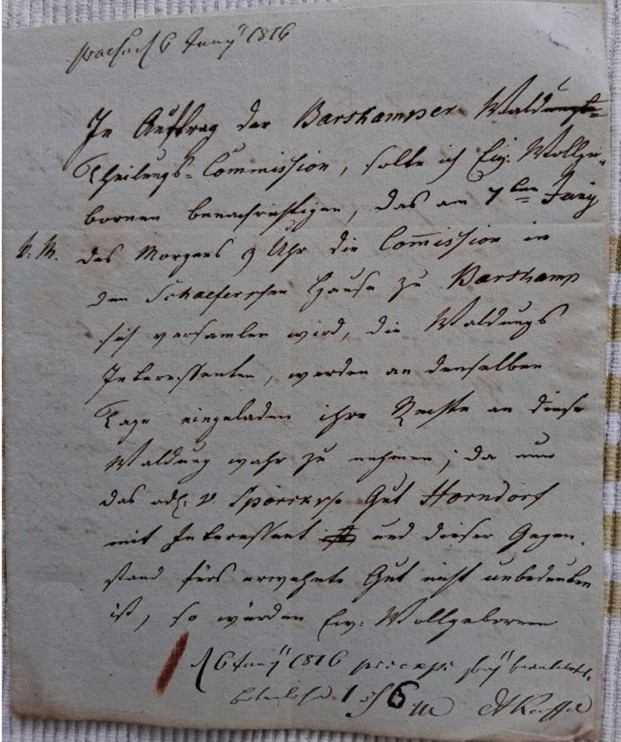 6 Juny 1816
In Auftrag der Barskamper Waldungs-
Theilungs-Commission, solte ich Ew. Wollge-
bornen benachrichtigen, das am 7ten Juny
d. M. des Morgens 9 Uhr die Com̅ission in
den Schaeferschen Hause zu Barskamp
sich versamlen wird, die Waldungs
Interessenten, werden an denselben
Tage eingeladen ihre Rechte an diese
Waldung wahr zu nehmen; da nun
das adl. v. Spörcksche Gut Horndorf
mit Interessent und dieser Gegen-
stand fürs erwehnte Gut nicht unbedeutend
ist, so würden Ew. Wollgebornen
6 Juny 1816